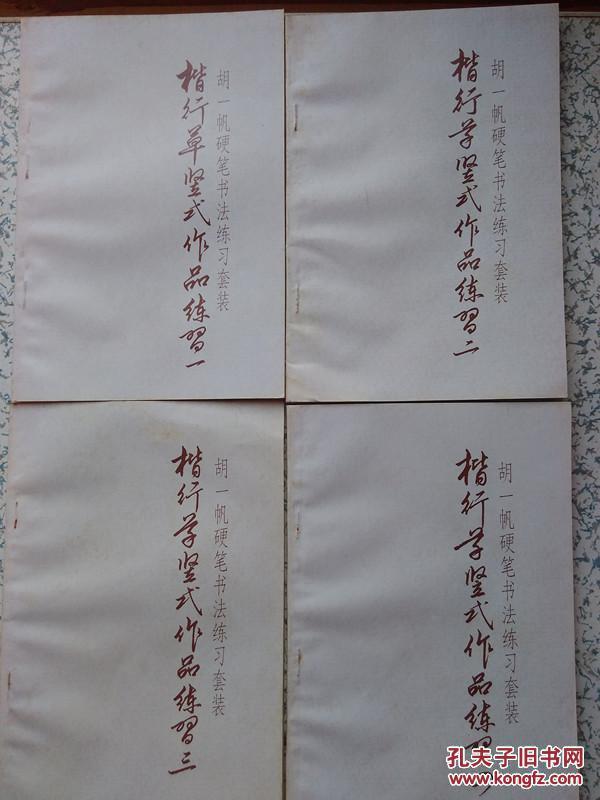 胡一帆硬笔书法练习套装
楷行草竖式作品练習一
胡一帆硬笔书法练习套装
楷行草竖式作品练習二
胡一帆硬笔书法练习套装
楷行草竖式作品练習三
胡一帆硬笔书法练习套装
楷行草竖式作品练習
孔夫子旧书网
www.kongfz.com